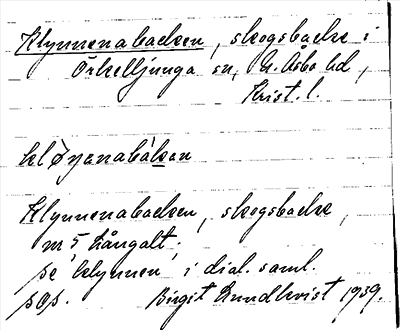 Klynnenabacken, skogsbacke i
Örkelljunga sn, N. Åsbo hd,
Krist. l.
kløṇenabakan
Klynnenabacken, skogsbacke,
m 5 Långalt.
se klynnen, i dial. saml.
Birgit Lundkvist 1939.